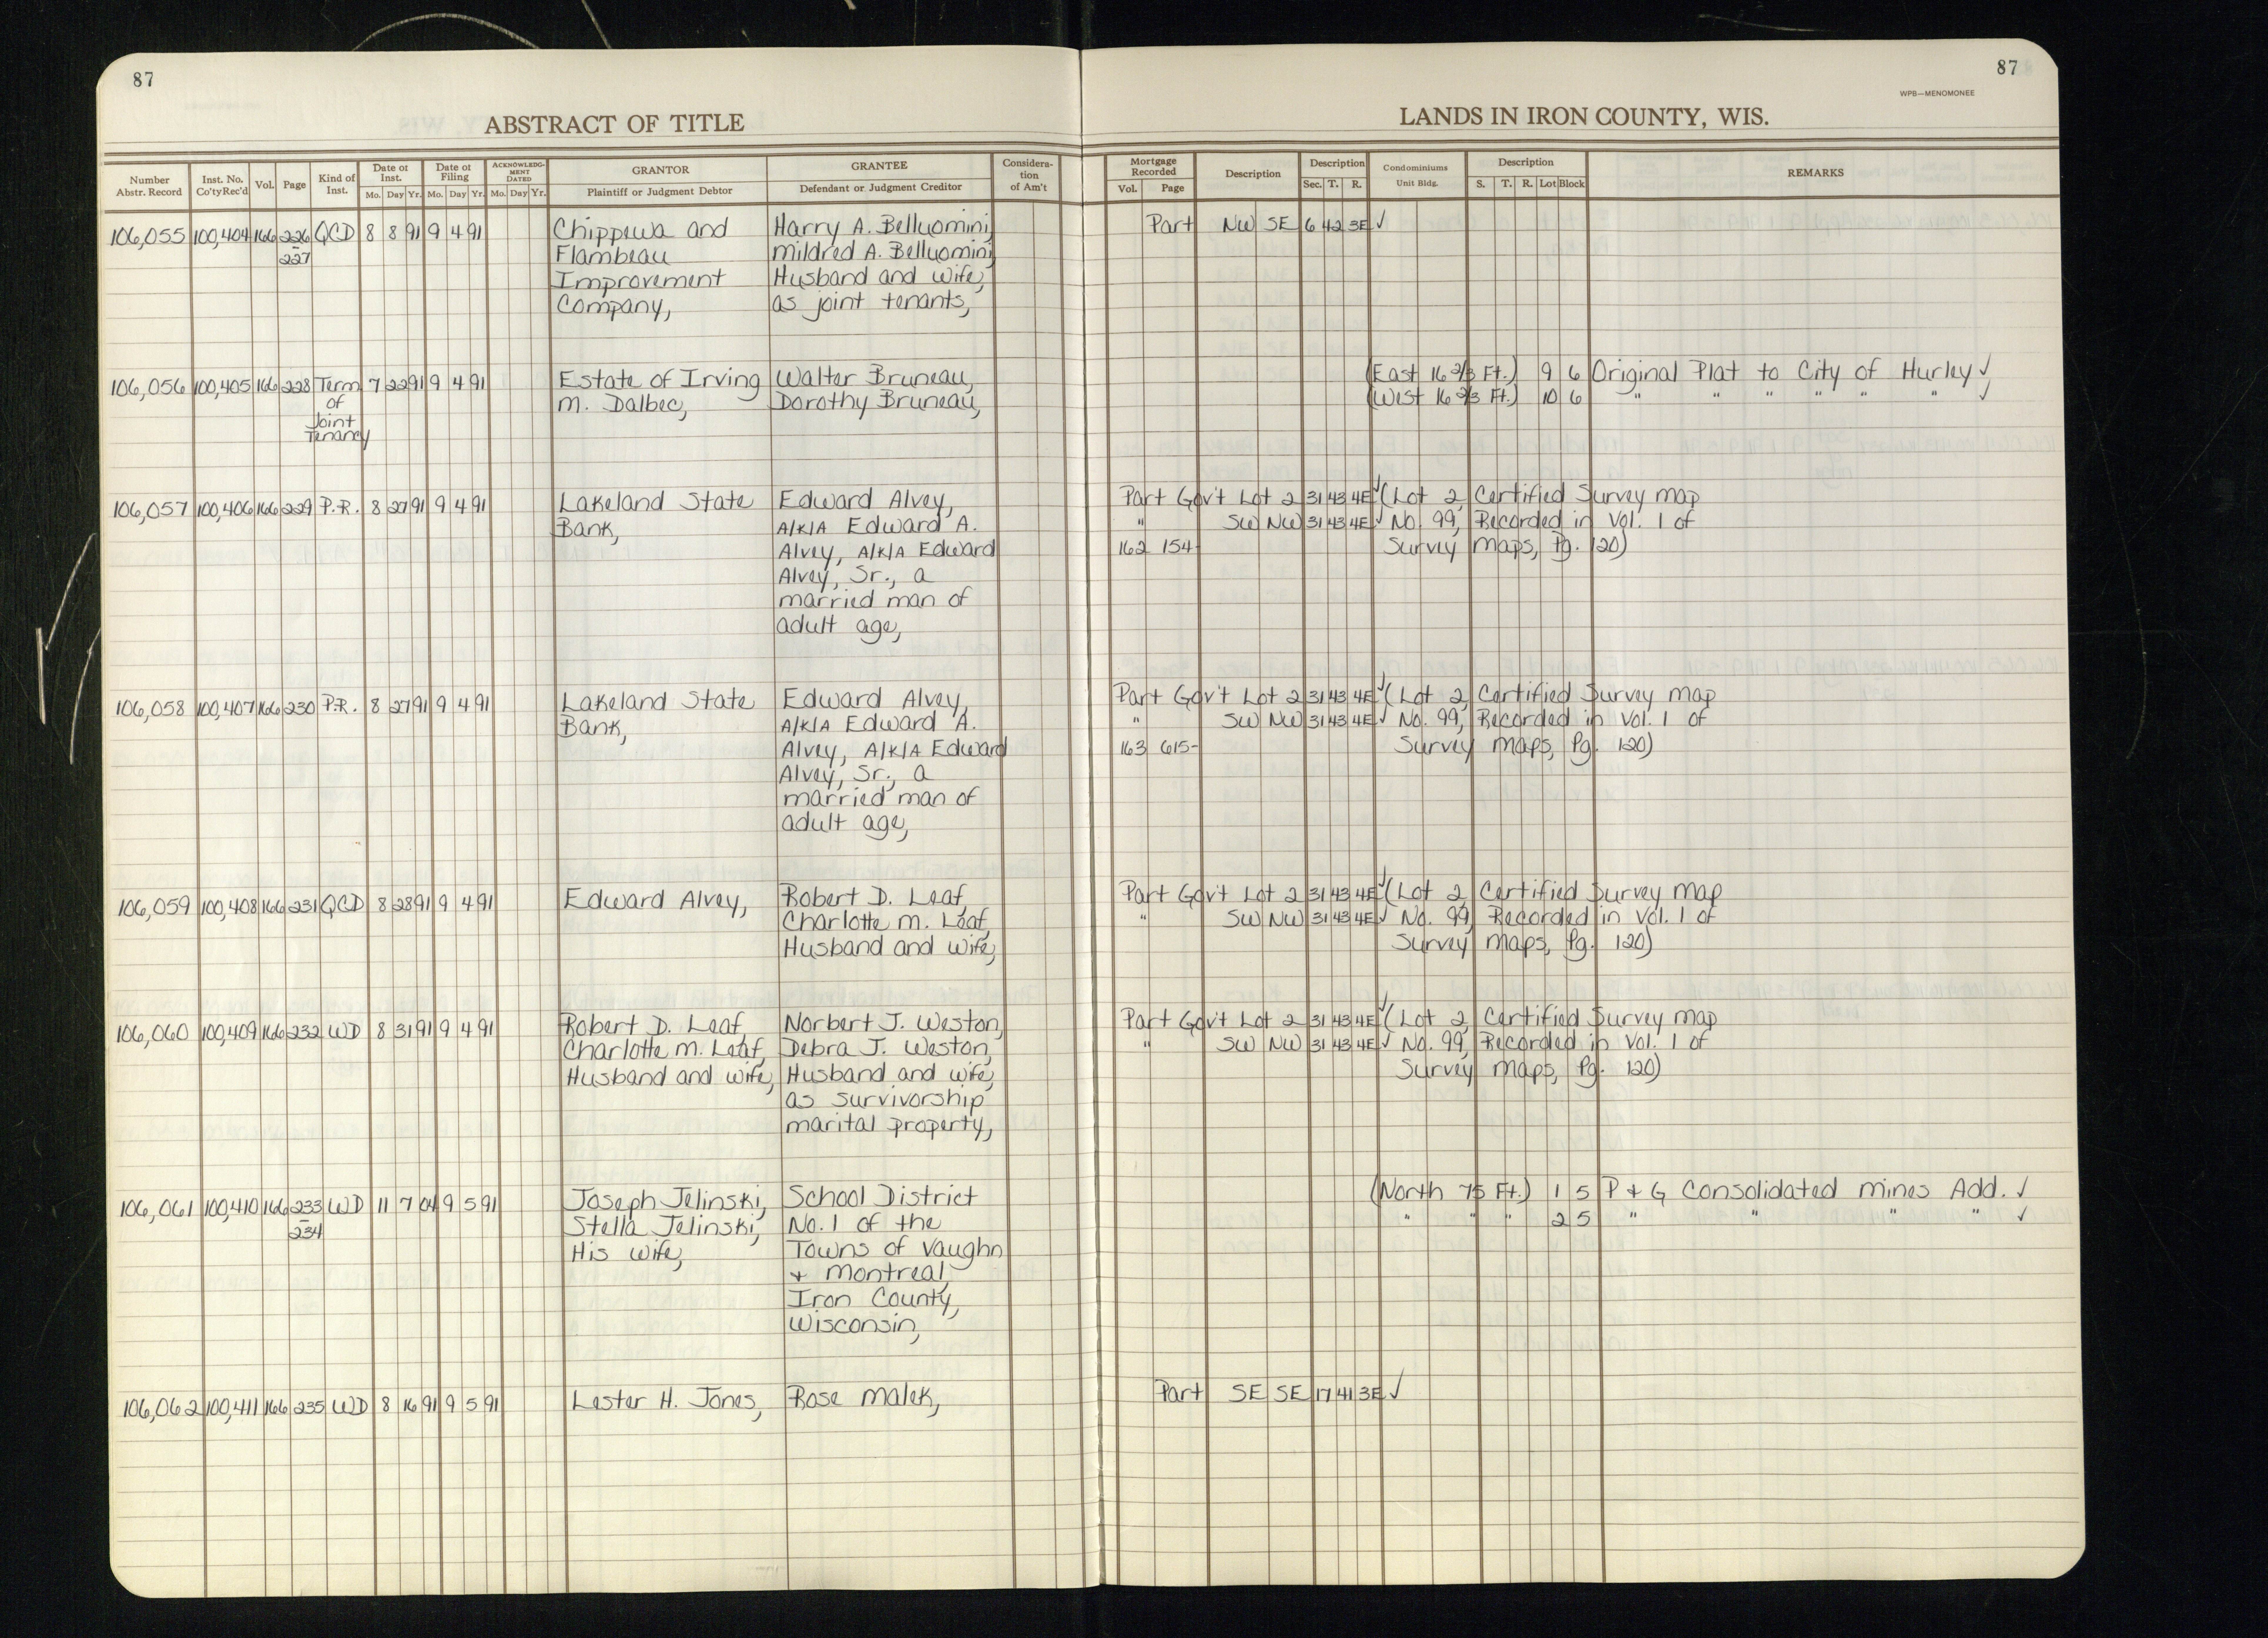 87
87
WPB—MENOMONEE
ABSTRACT OF TITLE
LANDS IN IRON COUNTY, WIS.
Number Abstr. Record | Inst. No. Co'ty Rec'd | Vol. | Page | Kind of Inst. | Date of Inst. Mo. Day Yr. | Date of Filing Mo. Day Yr. | ACKNOWLEDGMENT DATED Mo. Day Yr. | GRANTOR Plaintiff or Judgment Debtor | GRANTEE Defendant or Judgment Creditor | Consideration of Am't | Mortgage Recorded Vol. Page | Description | Description Sec. T. R. | Condominiums Unit Bldg. | Description S. T. R. Lot Block | REMARKS
106,055 100,404 166 226 QCD 8 8 91 9 4 91 Chippewa and Harry A. Belluomini, Part NW SE 6 42 3E ✓
227 Flambeau Mildred A. Belluomini,
Improvement Husband and Wife,
Company, as joint tenants,
106,056 100,405 166 228 Term 7 22 91 9 4 91 Estate of Irving Walter Bruneau, (East 16 2/3 Ft.) 9 6 Original Plat to City of Hurley ✓
of M. Dalbec, Dorothy Bruneau, (West 16 2/3 Ft.) 10 6 " " " " " " ✓
Joint
Tenancy
106,057 100,406 166 229 P.R. 8 27 91 9 4 91 Lakeland State Edward Alvey, Part Gov't Lot 2 31 43 4E ✓ (Lot 2, Certified Survey Map
Bank, A/K/A Edward A. " SW NW 31 43 4E ✓ No. 99, Recorded in Vol. 1 of
Alvey, A/K/A Edward 162 154 Survey Maps, Pg. 120)
Alvey, Sr., a
married man of
adult age,
106,058 100,407 166 230 P.R. 8 27 91 9 4 91 Lakeland State Edward Alvey, Part Gov't Lot 2 31 43 4E ✓ (Lot 2, Certified Survey Map
Bank, A/K/A Edward A. " SW NW 31 43 4E ✓ No. 99, Recorded in Vol. 1 of
Alvey, A/K/A Edward 163 615 Survey Maps, Pg. 120)
Alvey, Sr., a
married man of
adult age,
106,059 100,408 166 231 QCD 8 28 91 9 4 91 Edward Alvey, Robert D. Leaf, Part Gov't Lot 2 31 43 4E ✓ (Lot 2, Certified Survey Map
Charlotte M. Leaf, " SW NW 31 43 4E ✓ No. 99, Recorded in Vol. 1 of
Husband and Wife, Survey Maps, Pg. 120)
106,060 100,409 166 232 WD 8 31 91 9 4 91 Robert D. Leaf, Norbert J. Weston, Part Gov't Lot 2 31 43 4E ✓ (Lot 2, Certified Survey Map
Charlotte M. Leaf, Debra J. Weston, " SW NW 31 43 4E ✓ No. 99, Recorded in Vol. 1 of
Husband and Wife, Husband and wife, Survey Maps, Pg. 120)
as survivorship
marital property,
106,061 100,410 166 233 WD 11 7 04 9 5 91 Joseph Jelinski, School District (North 75 Ft.) 1 5 P & G Consolidated Mines Add. ✓
234 Stella Jelinski, No. 1 of the " " " 2 5 " " " " ✓
His wife, Towns of Vaughn
& Montreal,
Iron County,
Wisconsin,
106,062 100,411 166 235 WD 8 16 91 9 5 91 Lester H. Jones, Rose Malek, Part SE SE 17 41 3E ✓